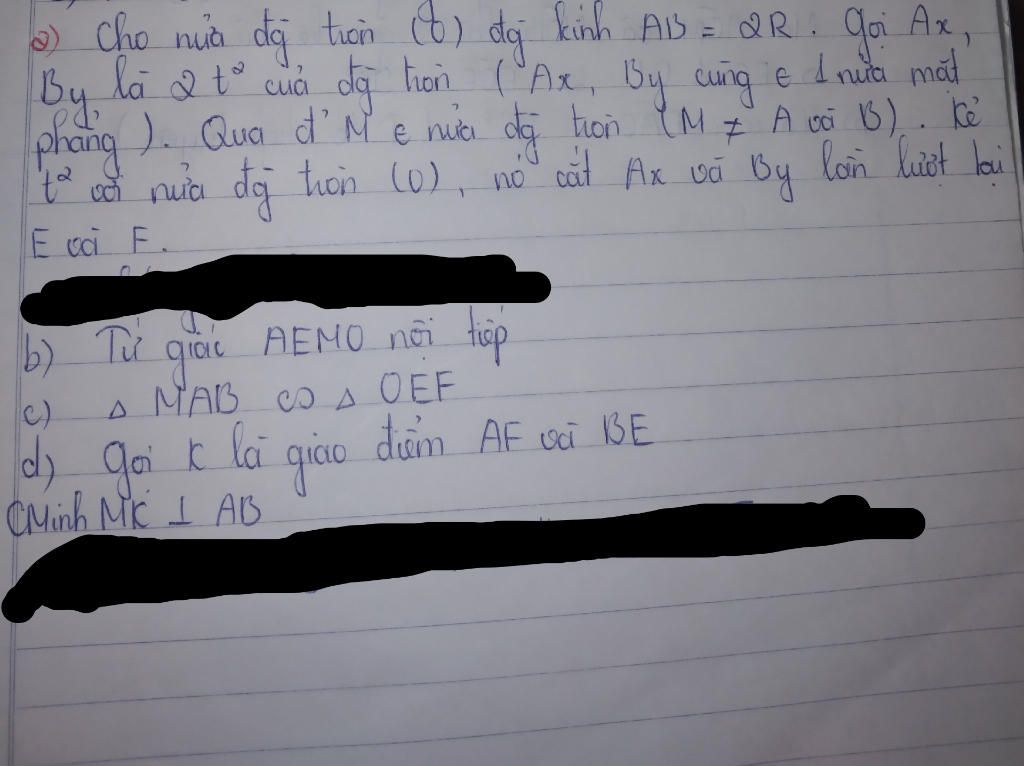 2) Cho nửa đg̃ tròn (O) đg̃ kính AB = 2R. Gọi Ax,
By là 2 t² của đg̃ tròn (Ax, By cùng ∈ 1 nửa mặt
phẳng). Qua đ' M ∈ nửa đg̃ tròn (M ≠ A và B). Kẻ
t² với nửa đg̃ tròn (O), nó cắt Ax và By lần lượt tại
E và F.
b) Tứ giác AEMO nội tiếp
c) Δ MAB ∽ Δ OEF
d) Gọi K là giao điểm AF và BE
CMinh MK ⊥ AB